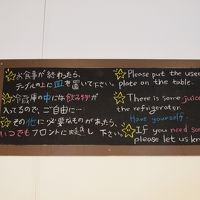 ☆お食事が終わったら、
テーブルの上に皿を置いて下さい。
☆冷蔵庫の中に飲み物が
入ってるので、ご自由に…
☆その他に必要なものがあったら、
いつでもフロントに 下さい。
☆Please put the used
plate on the table.
☆There is some juice
the refrigerator.
Have yourself.
☆If you need some
please let us know